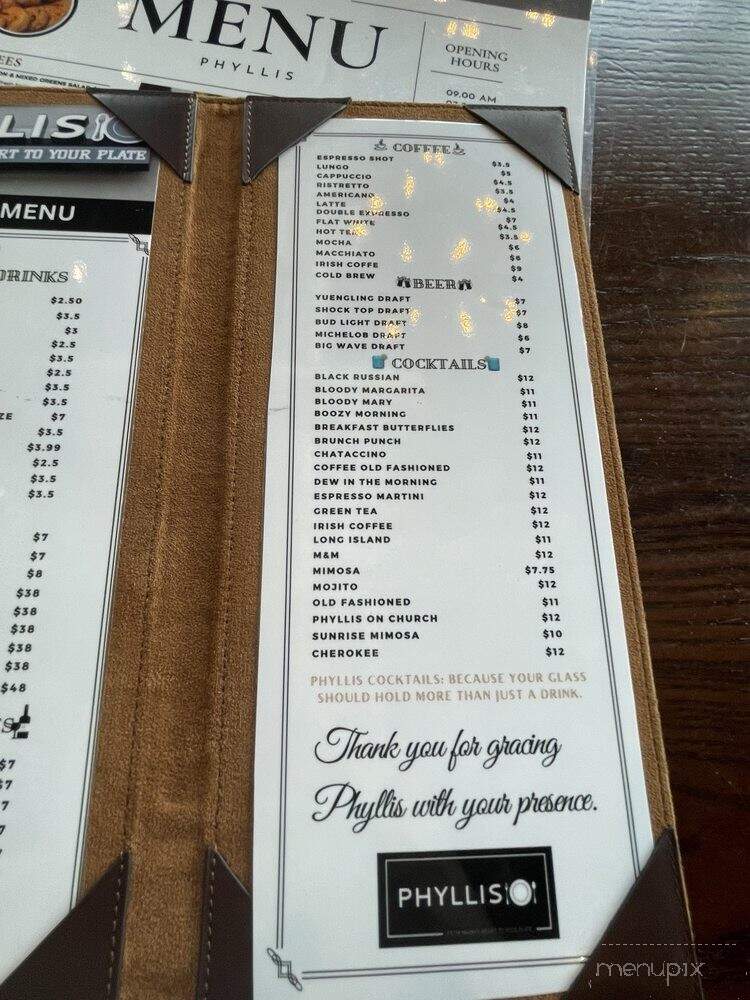 MENU
PHYLLIS
OPENING
HOURS
09.00 AM
LIS
RT TO YOUR PLATE
MENU
DRINKS
$2.50
$3.5
$3
$2.5
$3.5
$2.5
$3.5
$3.5
ZE $7
$3.5
$3.99
$2.5
$3.5
$3.5
$7
$7
$8
$38
$38
$38
$38
$38
$48
$7
$7
COFFEE
ESPRESSO SHOT $3.5
LUNGO $5
CAPPUCCIO $4.5
RISTRETTO $3.5
AMERICANO $4
LATTE $4.5
DOUBLE EXPRESSO $7
FLAT WHITE $4.5
HOT TEA $3.5
MOCHA $6
MACCHIATO $6
IRISH COFFE $9
COLD BREW $4
BEER
YUENGLING DRAFT $7
SHOCK TOP DRAFT $7
BUD LIGHT DRAFT $8
MICHELOB DRAFT $6
BIG WAVE DRAFT $7
COCKTAILS
BLACK RUSSIAN $12
BLOODY MARGARITA $11
BLOODY MARY $11
BOOZY MORNING $11
BREAKFAST BUTTERFLIES $12
BRUNCH PUNCH $12
CHATACCINO $11
COFFEE OLD FASHIONED $12
DEW IN THE MORNING $11
ESPRESSO MARTINI $12
GREEN TEA $12
IRISH COFFEE $12
LONG ISLAND $11
M&M $12
MIMOSA $7.75
MOJITO $12
OLD FASHIONED $11
PHYLLIS ON CHURCH $12
SUNRISE MIMOSA $10
CHEROKEE $12
PHYLLIS COCKTAILS: BECAUSE YOUR GLASS
SHOULD HOLD MORE THAN JUST A DRINK.
Thank you for gracing
Phyllis with your presence.
PHYLLIS
menupix